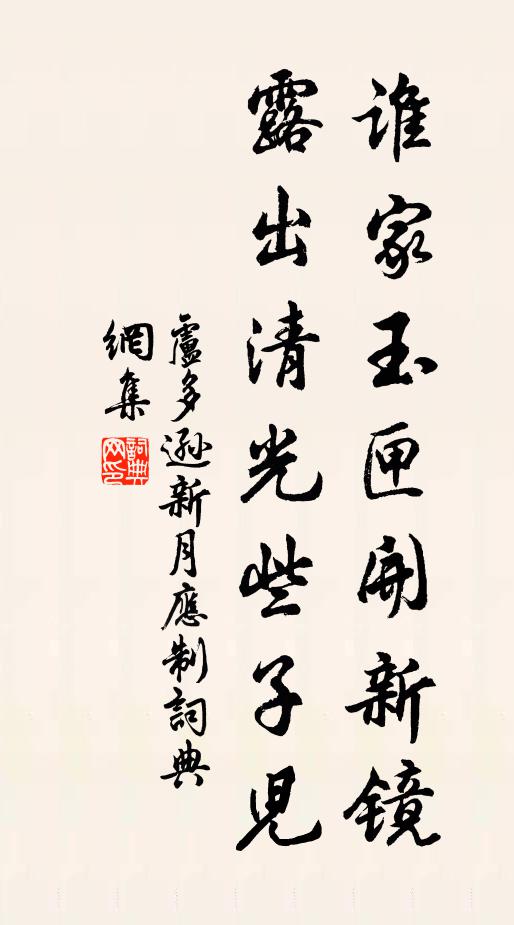 谁家玉匣開新镜
露出清光些子児
盧多遜新月應制詞典
網集
詞典网印